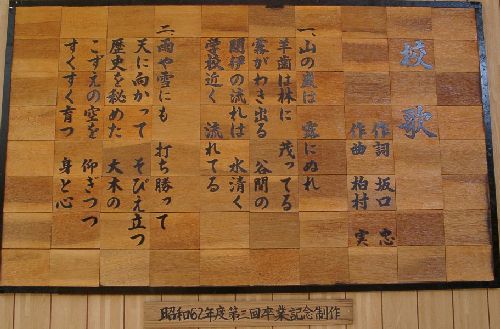 校歌
作詞 坂口 忠
作曲 柏村 実
一、山の嵐は 霧にぬれ
羊歯は林に 茂ってる
霧がわき出る 谷間の
閉伊の流れは 水清く
学校近く 流れてる
二、雨や雪にも 打ち勝って
天に向かって そびえ立つ
歴史を秘めた 大木の
こずえの空を 仰ぎつつ
すくすく育つ 身と心
昭和62年度第三回卒業記念制作